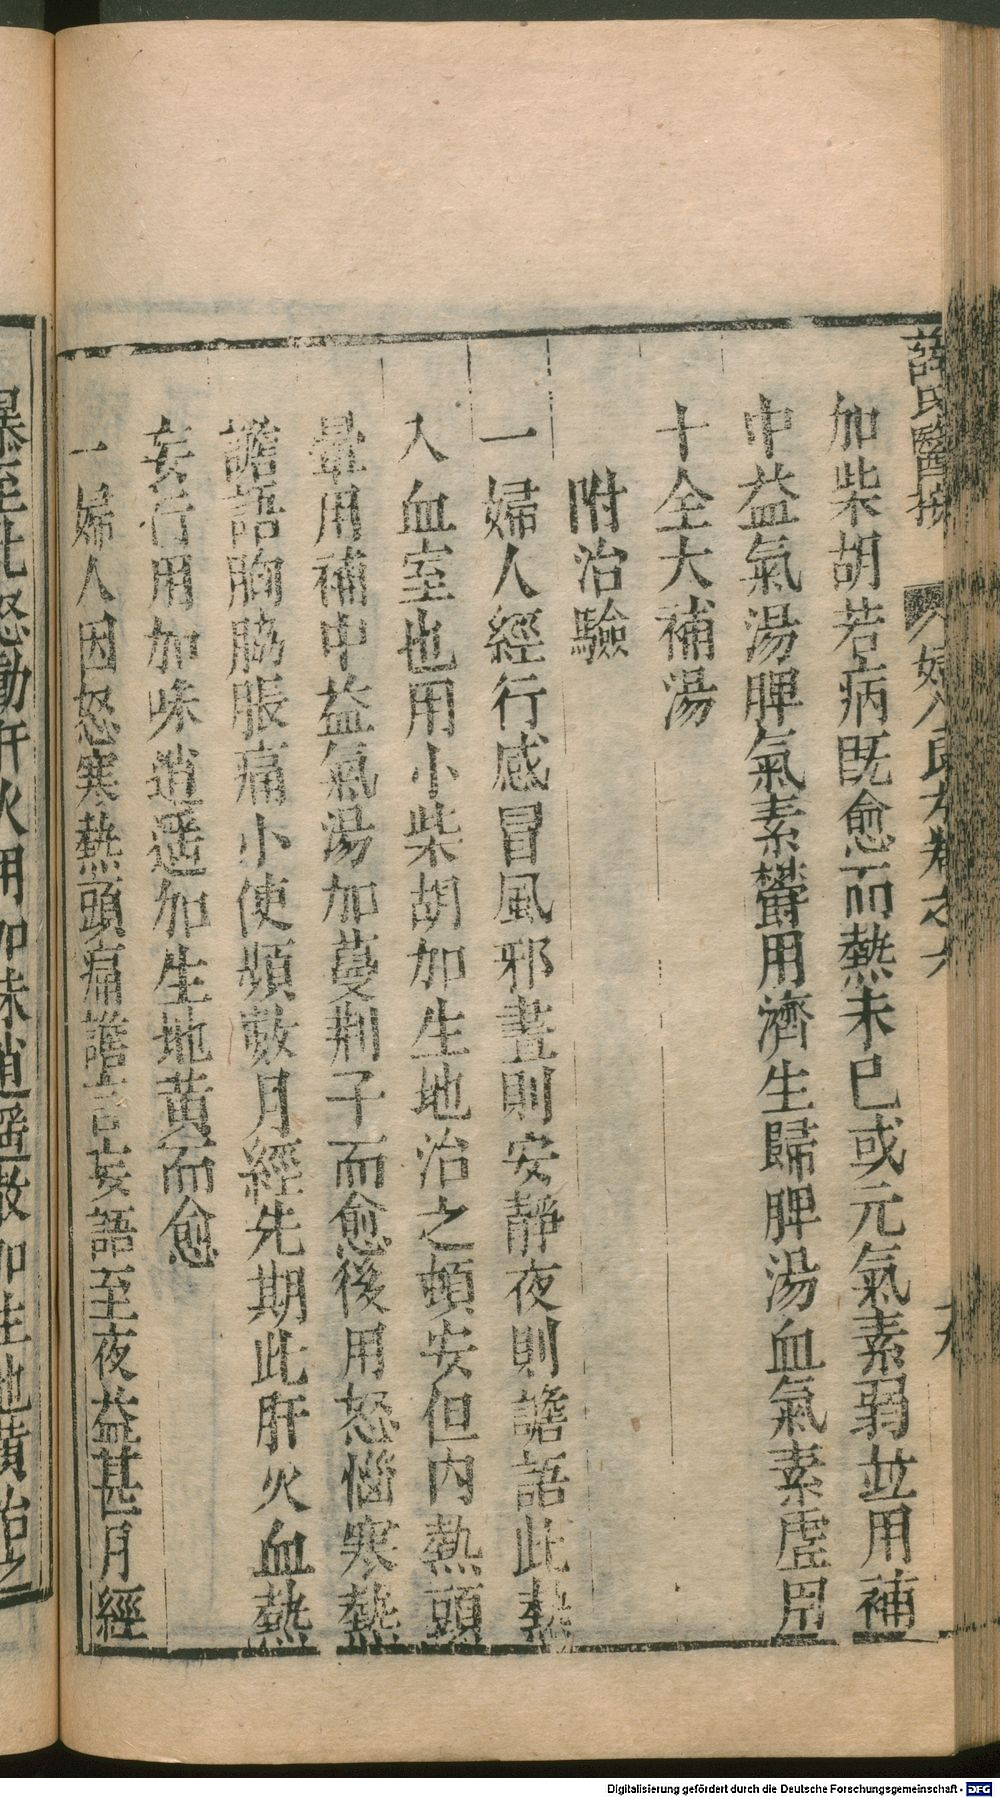 薛氏醫按 婦人良方卷之六
加柴胡若病既愈而熱未已或元氣素弱並用補
中益氣湯脾氣素欝用濟生歸脾湯血氣素虛用
十全大補湯
附治驗
一婦人經行感冒風邪晝則安靜夜則譫語此熱
入血室也用小柴胡加生地治之頓安但內熱頭
暈用補中益氣湯加蔓荆子而愈後用怒惱寒熱
譫語胸脇脹痛小使頻數月經先期此肝火血熱
妄行用加味逍遥加生地黄而愈
一婦人因怒寒熱頭痛譫言妄語至夜益甚月經
暴至此怒動肝火用加味逍遥散加生地黄治之
Digitalisierung gefördert durch die Deutsche Forschungsgemeinschaft - DFG